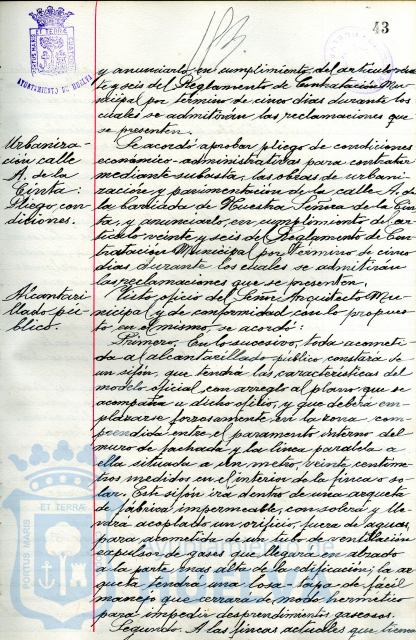 43
PORTUS MARIS ET TERRAE CUSTODIA
AYUNTAMIENTO DE HUELVA
y anunciarlo, en cumplimiento del artículo vein-
te y seis del Reglamento de Contratación Mu-
nicipal por término de cinco días durante los
cuales se admitirán las reclamaciones que
se presenten.
Urbaniza-
ción calle
A. de la
Cinta:
Pliego con-
diciones.
Se acordó aprobar pliego de condiciones
económico-administrativas para contratar
mediante subasta, las obras de urbani-
zación y pavimentación de la calle A. de
la barriada de Nuestra Señora de la Cin-
ta, y anunciarlo, en cumplimiento del ar-
tículo veinte y seis del Reglamento de Con-
tratación Municipal por término de cinco
días durante los cuales se admitirán
las reclamaciones que se presenten.
Alcantari-
llado pú-
blico.
Visto oficio del Señor Arquitecto Mu-
nicipal y de conformidad con lo propues-
to en el mismo, se acordó:
Primero. En lo sucesivo, toda acometi-
da al alcantarillado público constará de
un sifón, que tendrá las características del
modelo oficial con arreglo al plano que se
acompaña a dicho oficio, y que deberá em-
plazarse forzosamente en la zona com-
prendida entre el paramento interno del
muro de fachada y la línea paralela a
ella situada a un metro, veinte centíme-
tros medidos en el interior de la finca o so-
lar. Este sifón irá dentro de una arqueta
de fábrica impermeable, con solera y lle-
vará acoplado un orificio, fuera de aguas,
para acometida de un tubo de ventilación
expulsor de gases que llegará bien alzado
a la parte más alta de la edificación; la ar-
queta tendrá una losa tapa de fácil
manejo que cerrará de modo hermético
para impedir desprendimientos gaseosos.
Segundo. A las fincas actuales que tie-
PORTUS MARIS ET TERRAE